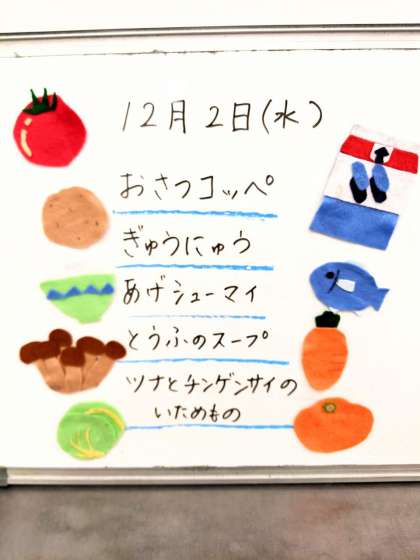 12月2日(水)
おさつコッペ
ぎゅうにゅう
あげシューマイ
とうふのスープ
ツナとチンゲンサイの
いためもの